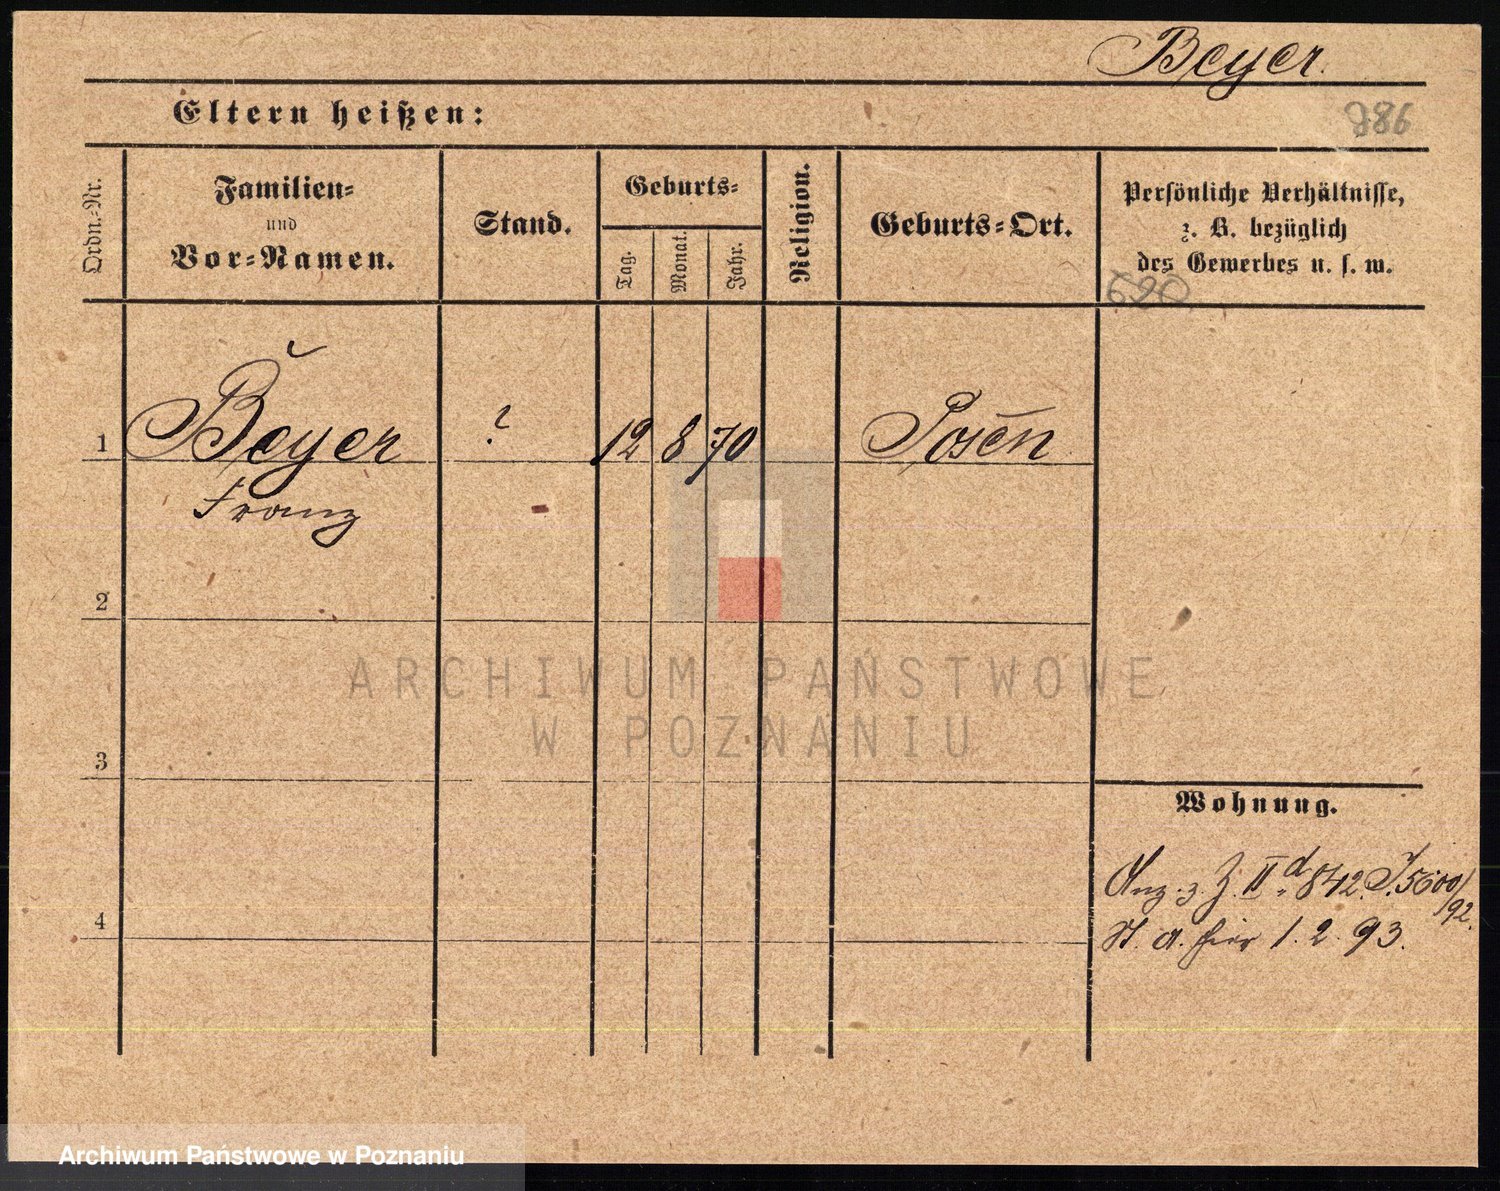 Beyer.
Eltern heißen:
986
Ordn.-Nr.
Familien-
und
Vor-Namen.
Stand.
Geburts-
Tag.
Monat.
Jahr.
Religion.
Geburts-Ort.
Persönliche Verhältnisse,
z. B. bezüglich
des Gewerbes u. s. w.
690
1 Beyer ? 12 8 70 Posen
Franz
2
3
4
Wohnung.
Anz. z. J. II d 842. J. 5600/92.
St. A. hier 1. 2. 93.
ARCHIWUM PAŃSTWOWE
W POZNANIU
Archiwum Państwowe w Poznaniu